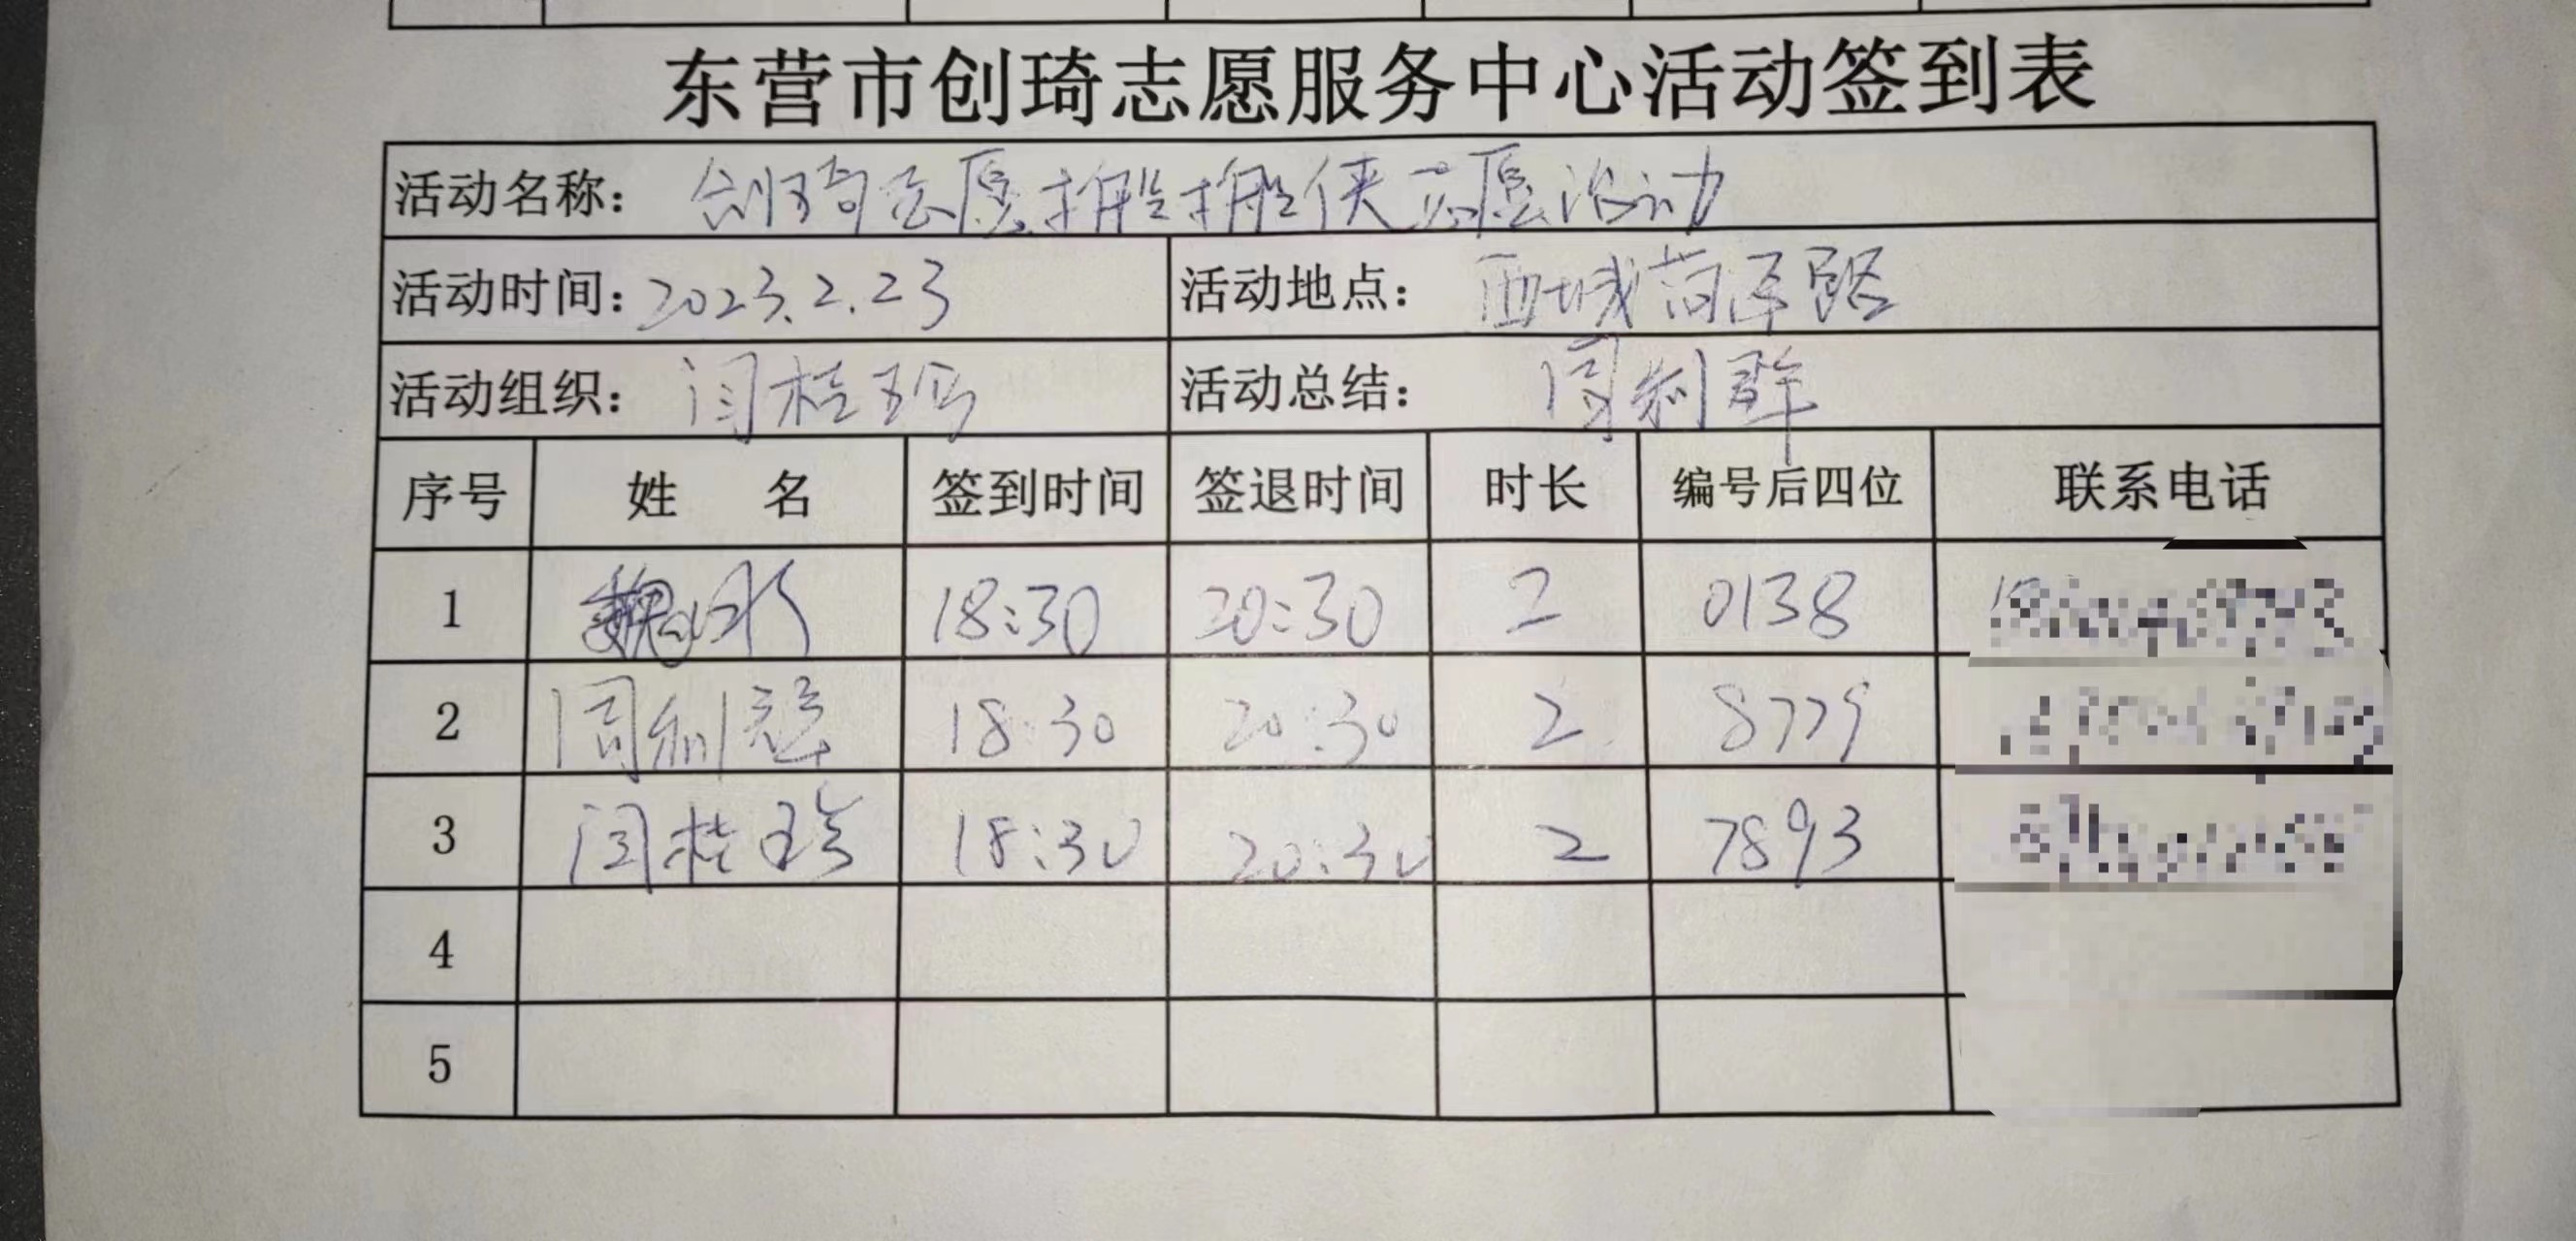 东营市创琦志愿服务中心活动签到表
活动名称： 创琦志愿搬搬侠志愿活动
活动时间：2023.2.23 活动地点： 西城
活动组织： 闫桂 活动总结： 周利群
序号 姓 名 签到时间 签退时间 时长 编号后四位 联系电话
1 魏 18:30 20:30 2 0138
2 周利群 18:30 20:30 2 8779
3 闫桂珍 18:30 20:30 2 7893
4
5